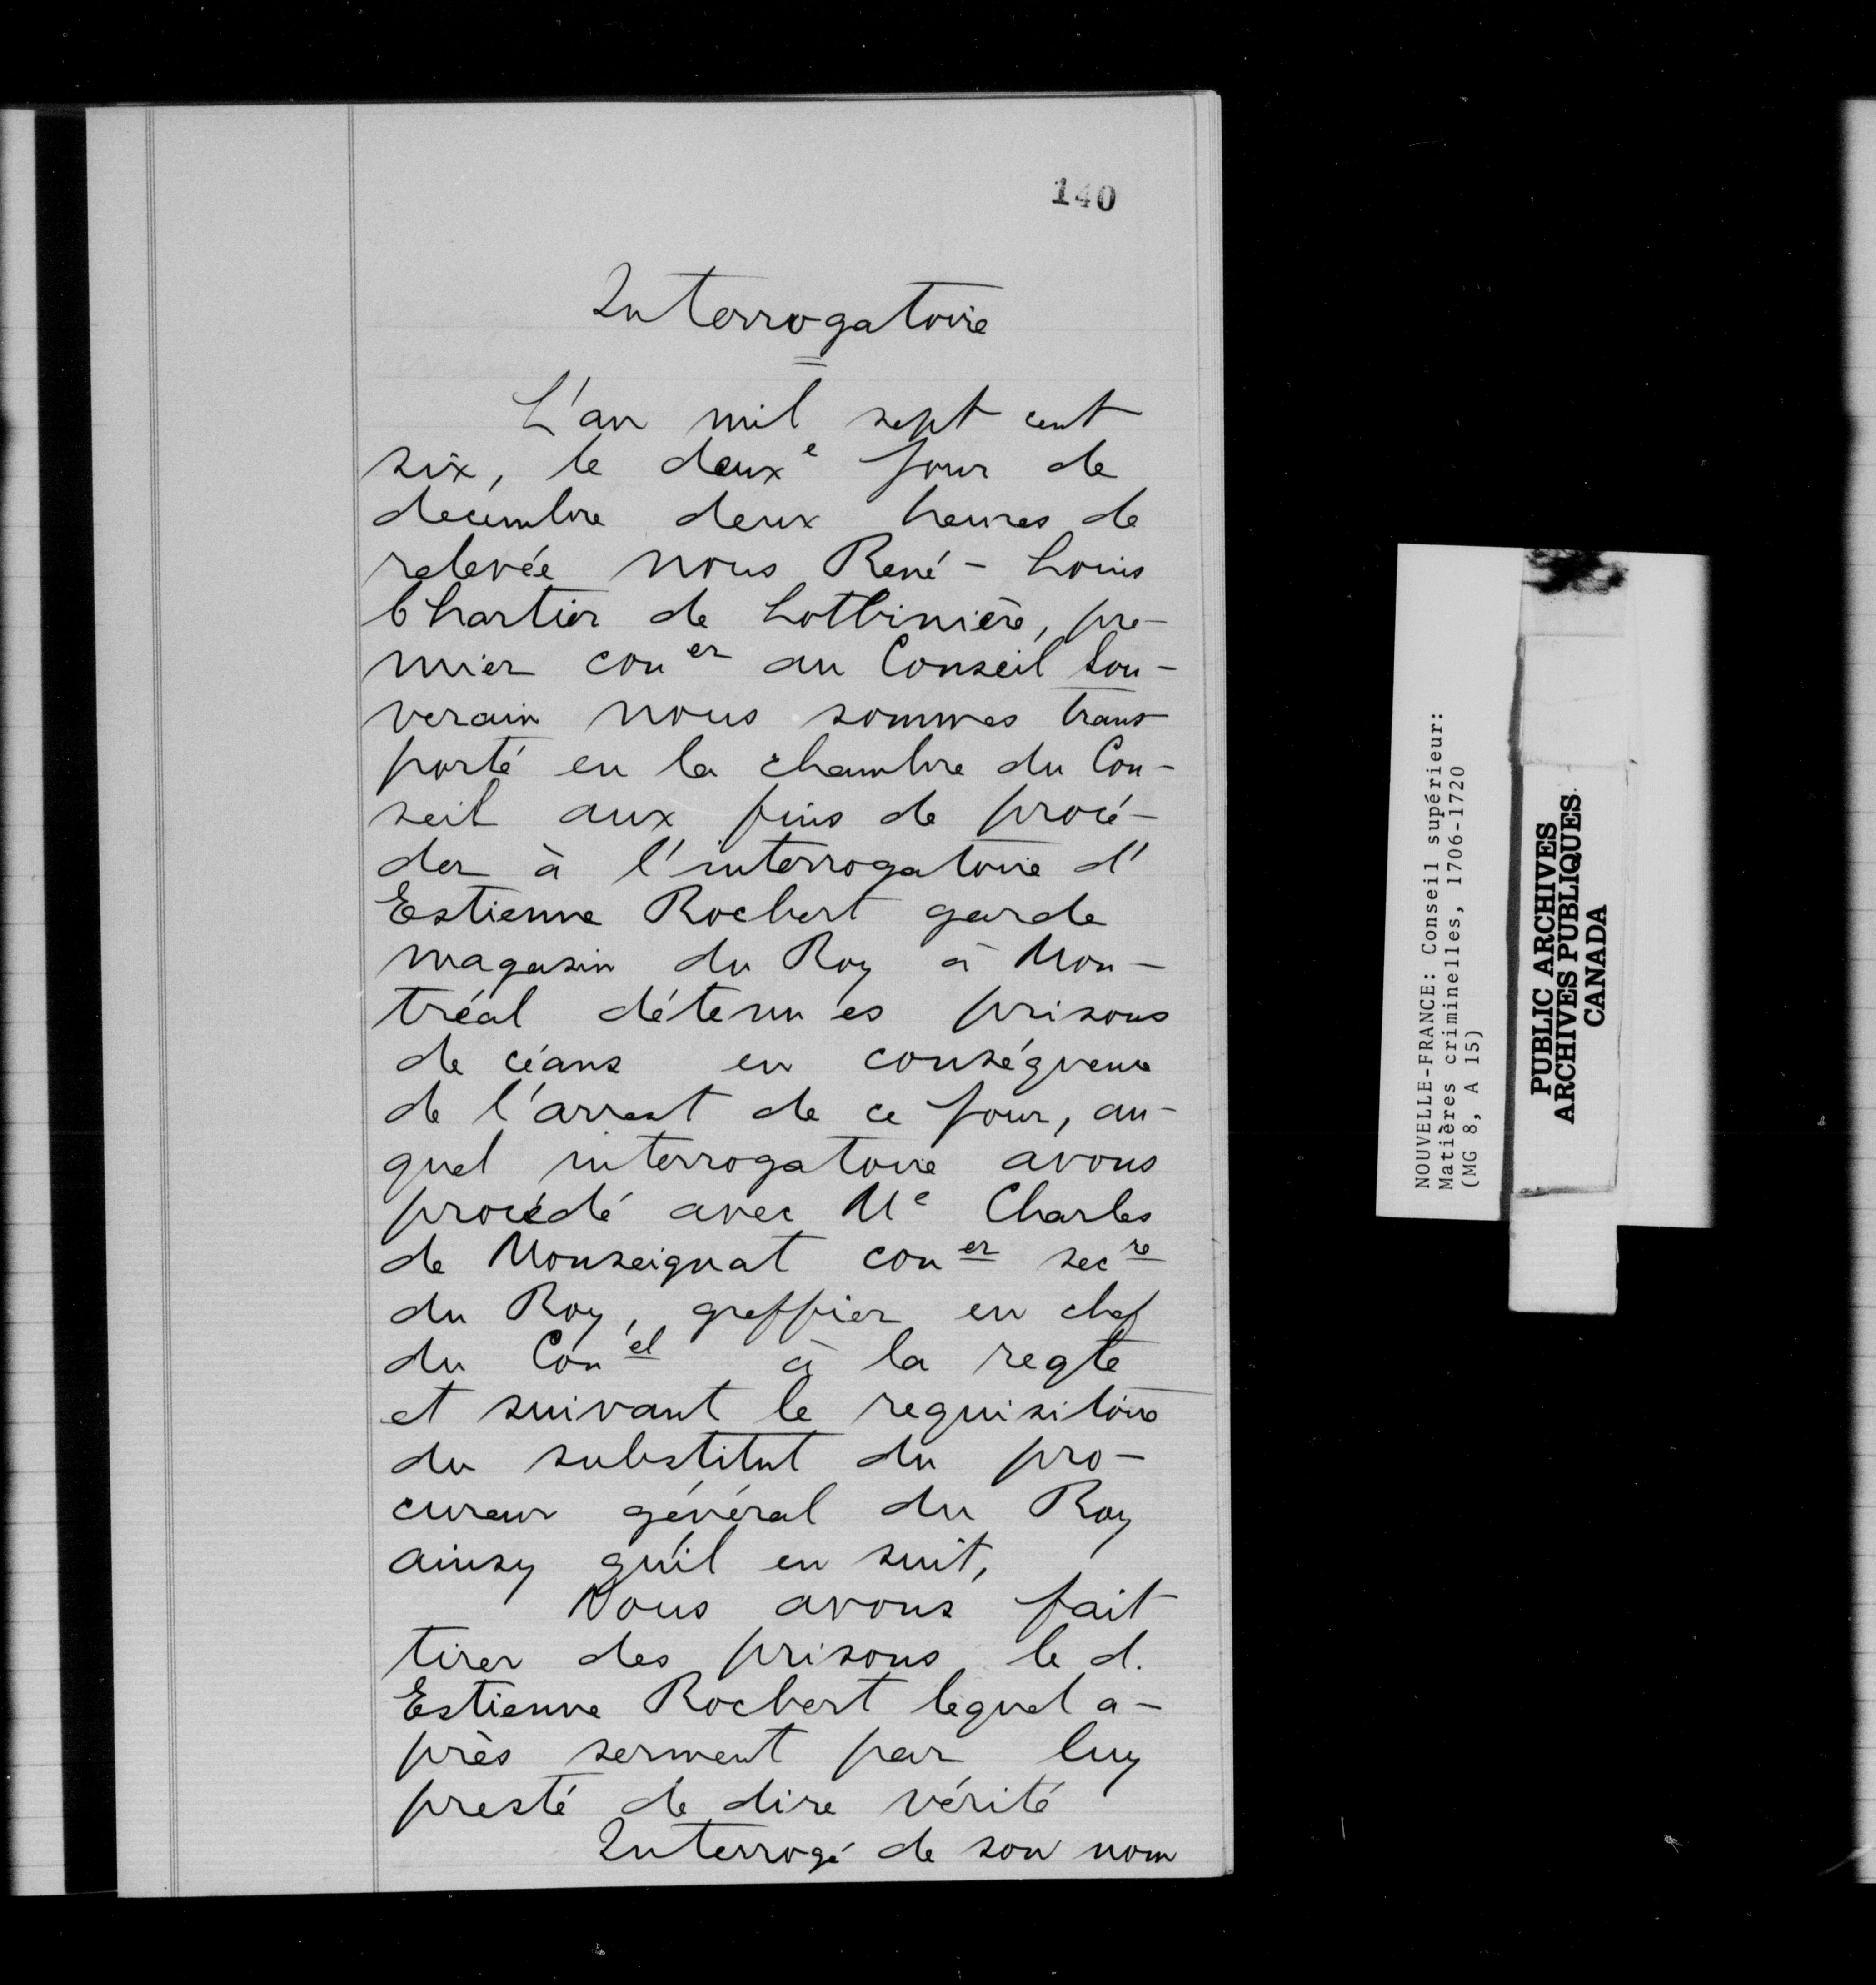 140
Interrogatoire
L'an mil sept cent
six, le deuxe jour de
decembre deux heures de
relevée nous René-Louis
Chartier de Lotbinière, pre-
mier coner au Conseil Sou-
verain nous sommes trans
porté en la chambre du Con-
seil aux fins de procé-
der à l'interrogatoire d'
Estienne Rocbert garde
magasin du Roy à Mon-
tréal détenu es prisons
de céans en conséquence
de l'arrest de ce jour, au-
quel interrogatoire avons
procédé avec Me Charles
de Monseignat coner secre
du Roy, greffier en chef
du Conel à la reqte
et suivant le requisitoire
du substitut du pro-
cureur général du Roy
ainsy qu'il en suit,
Nous avons fait
tirer des prisons le d.
Estienne Rocbert lequel a-
près serment par luy
presté de dire vérité
Interrogé de son nom
NOUVELLE-FRANCE: Conseil supérieur:
Matières criminelles, 1706-1720
(MG 8, A 15)
PUBLIC ARCHIVES
ARCHIVES PUBLIQUES
CANADA